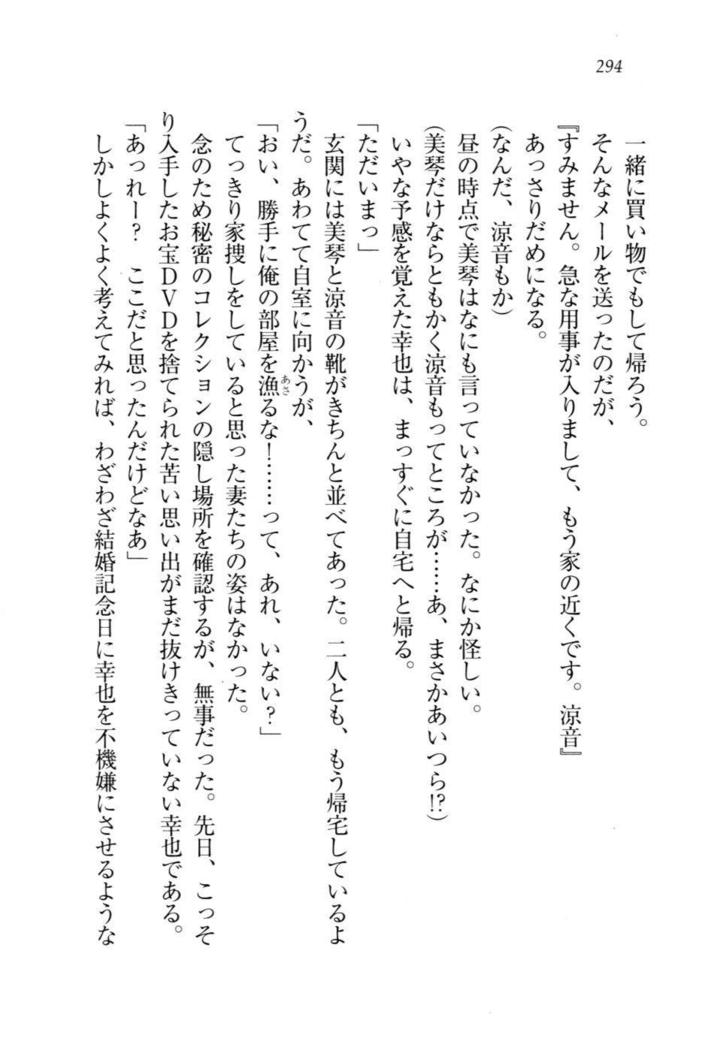 294
一緒に買い物でもして帰ろう。
そんなメールを送ったのだが、
『すみません。急な用事が入りまして、もう家の近くです。涼音』
あっさりだめになる。
(なんだ、涼音もか)
昼の時点で美琴はなにも言っていなかった。なにか怪しい。
(美琴だけならともかく涼音もってところが……あ、まさかあいつら!?)
いやな予感を覚えた幸也は、まっすぐに自宅へと帰る。
「ただいまっ」
玄関には美琴と涼音の靴がきちんと並べてあった。二人とも、もう帰宅しているよ
うだ。あわてて自室に向かうが、
「おい、勝手に俺の部屋を漁るな!……って、あれ、いない?」
あさ
てっきり家捜しをしていると思った妻たちの姿はなかった。
念のため秘密のコレクションの隠し場所を確認するが、無事だった。先日、こっそ
り入手したお宝DVDを捨てられた苦い思い出がまだ抜けきっていない幸也である。
「あっれー? ここだと思ったんだけどなあ」
しかしよくよく考えてみれば、わざわざ結婚記念日に幸也を不機嫌にさせるような